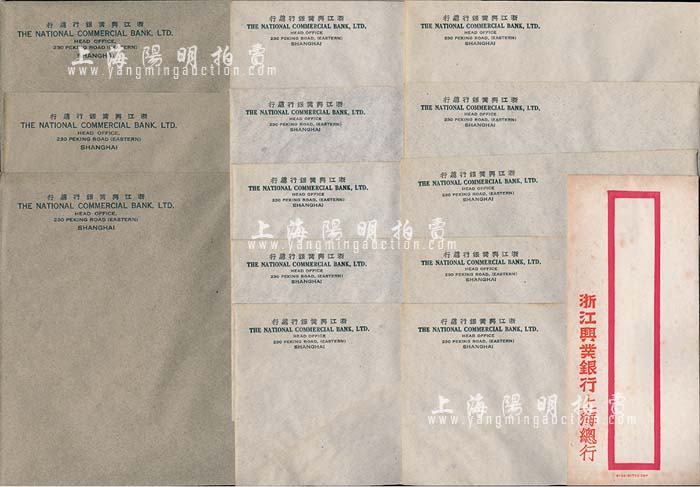 行總行銀業興江浙
THE NATIONAL COMMERCIAL BANK, LTD.
HEAD OFFICE,
230 PEKING ROAD, (EASTERN)
SHANGHAI
行總行銀業興江浙
THE NATIONAL COMMERCIAL BANK, LTD.
HEAD OFFICE,
230 PEKING ROAD (EASTERN)
SHANGHAI
行總行銀業興江浙
THE NATIONAL COMMERCIAL BANK, LTD.
HEAD OFFICE,
230 PEKING ROAD (EASTERN)
SHANGHAI
行總行銀業興江浙
THE NATIONAL COMMERCIAL BANK, LTD.
HEAD OFFICE
230 PEKING ROAD, (EASTERN)
SHANGHAI
行總行銀業興江浙
THE NATIONAL COMMERCIAL BANK, LTD.
HEAD OFFICE
230 PEKING ROAD, (EASTERN)
SHANGHAI
行總行銀業興江浙
THE NATIONAL COMMERCIAL BANK, LTD.
HEAD OFFICE
230 PEKING ROAD, (EASTERN)
SHANGHAI
行總行銀業興江浙
THE NATIONAL COMMERCIAL BANK, LTD.
HEAD OFFICE
230 PEKING ROAD, (EASTERN)
SHANGHAI
行總行銀業興江浙
THE NATIONAL COMMERCIAL BANK, LTD.
HEAD OFFICE
230 PEKING ROAD, (EASTERN)
SHANGHAI
行總行銀業興江浙
THE NATIONAL COMMERCIAL BANK, LTD.
HEAD OFFICE
230 PEKING ROAD, (EASTERN)
SHANGHAI
行總行銀業興江浙
THE NATIONAL COMMERCIAL BANK, LTD.
HEAD OFFICE
230 PEKING ROAD, (EASTERN)
SHANGHAI
行總行銀業興江浙
THE NATIONAL COMMERCIAL BANK, LTD.
HEAD OFFICE
230 PEKING ROAD, (EASTERN)
SHANGHAI
行總行銀業興江浙
THE NATIONAL COMMERCIAL BANK, LTD.
HEAD OFFICE
230 PEKING ROAD, (EASTERN)
SHANGHAI
行總行銀業興江浙
THE NATIONAL COMMERCIAL BANK, LTD.
HEAD OFFICE
230 PEKING ROAD, (EASTERN)
SHANGHAI
浙江興業銀行上海總行
上海陽明拍賣
www.yangmingauction.com
上海陽明拍賣
www.yangmingauction.com
上海陽明拍賣
www.yangmingauction.com